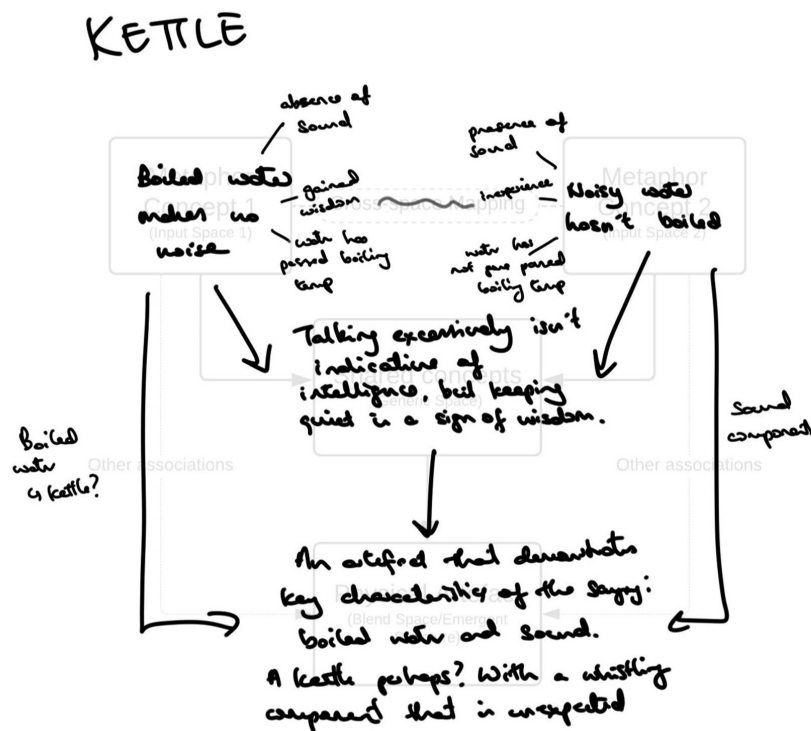 KETTLE
absence of
sound
Boiled water
makes no
noise
gained
wisdom
water has
passed boiling
temp
presence of
sound
Inexperience
Noisy water
hasn't boiled
water has
not passed
boiling temp
Metaphor
Concept 1
(Input Space 1)
Cross-Space Mapping
Metaphor
Concept 2
(Input Space 2)
Talking excessively isn't
indicative of
intelligence, but keeping
quiet is a sign of wisdom.
Shared concepts
(Generic Space)
Boiled
water
↳ kettle?
Other associations
Sound
component
Other associations
An artifact that demonstrates
key characteristics of the saying:
boiled water and sound.
A kettle perhaps? With a whistling
component that is unexpected
(Blend Space/Emergent